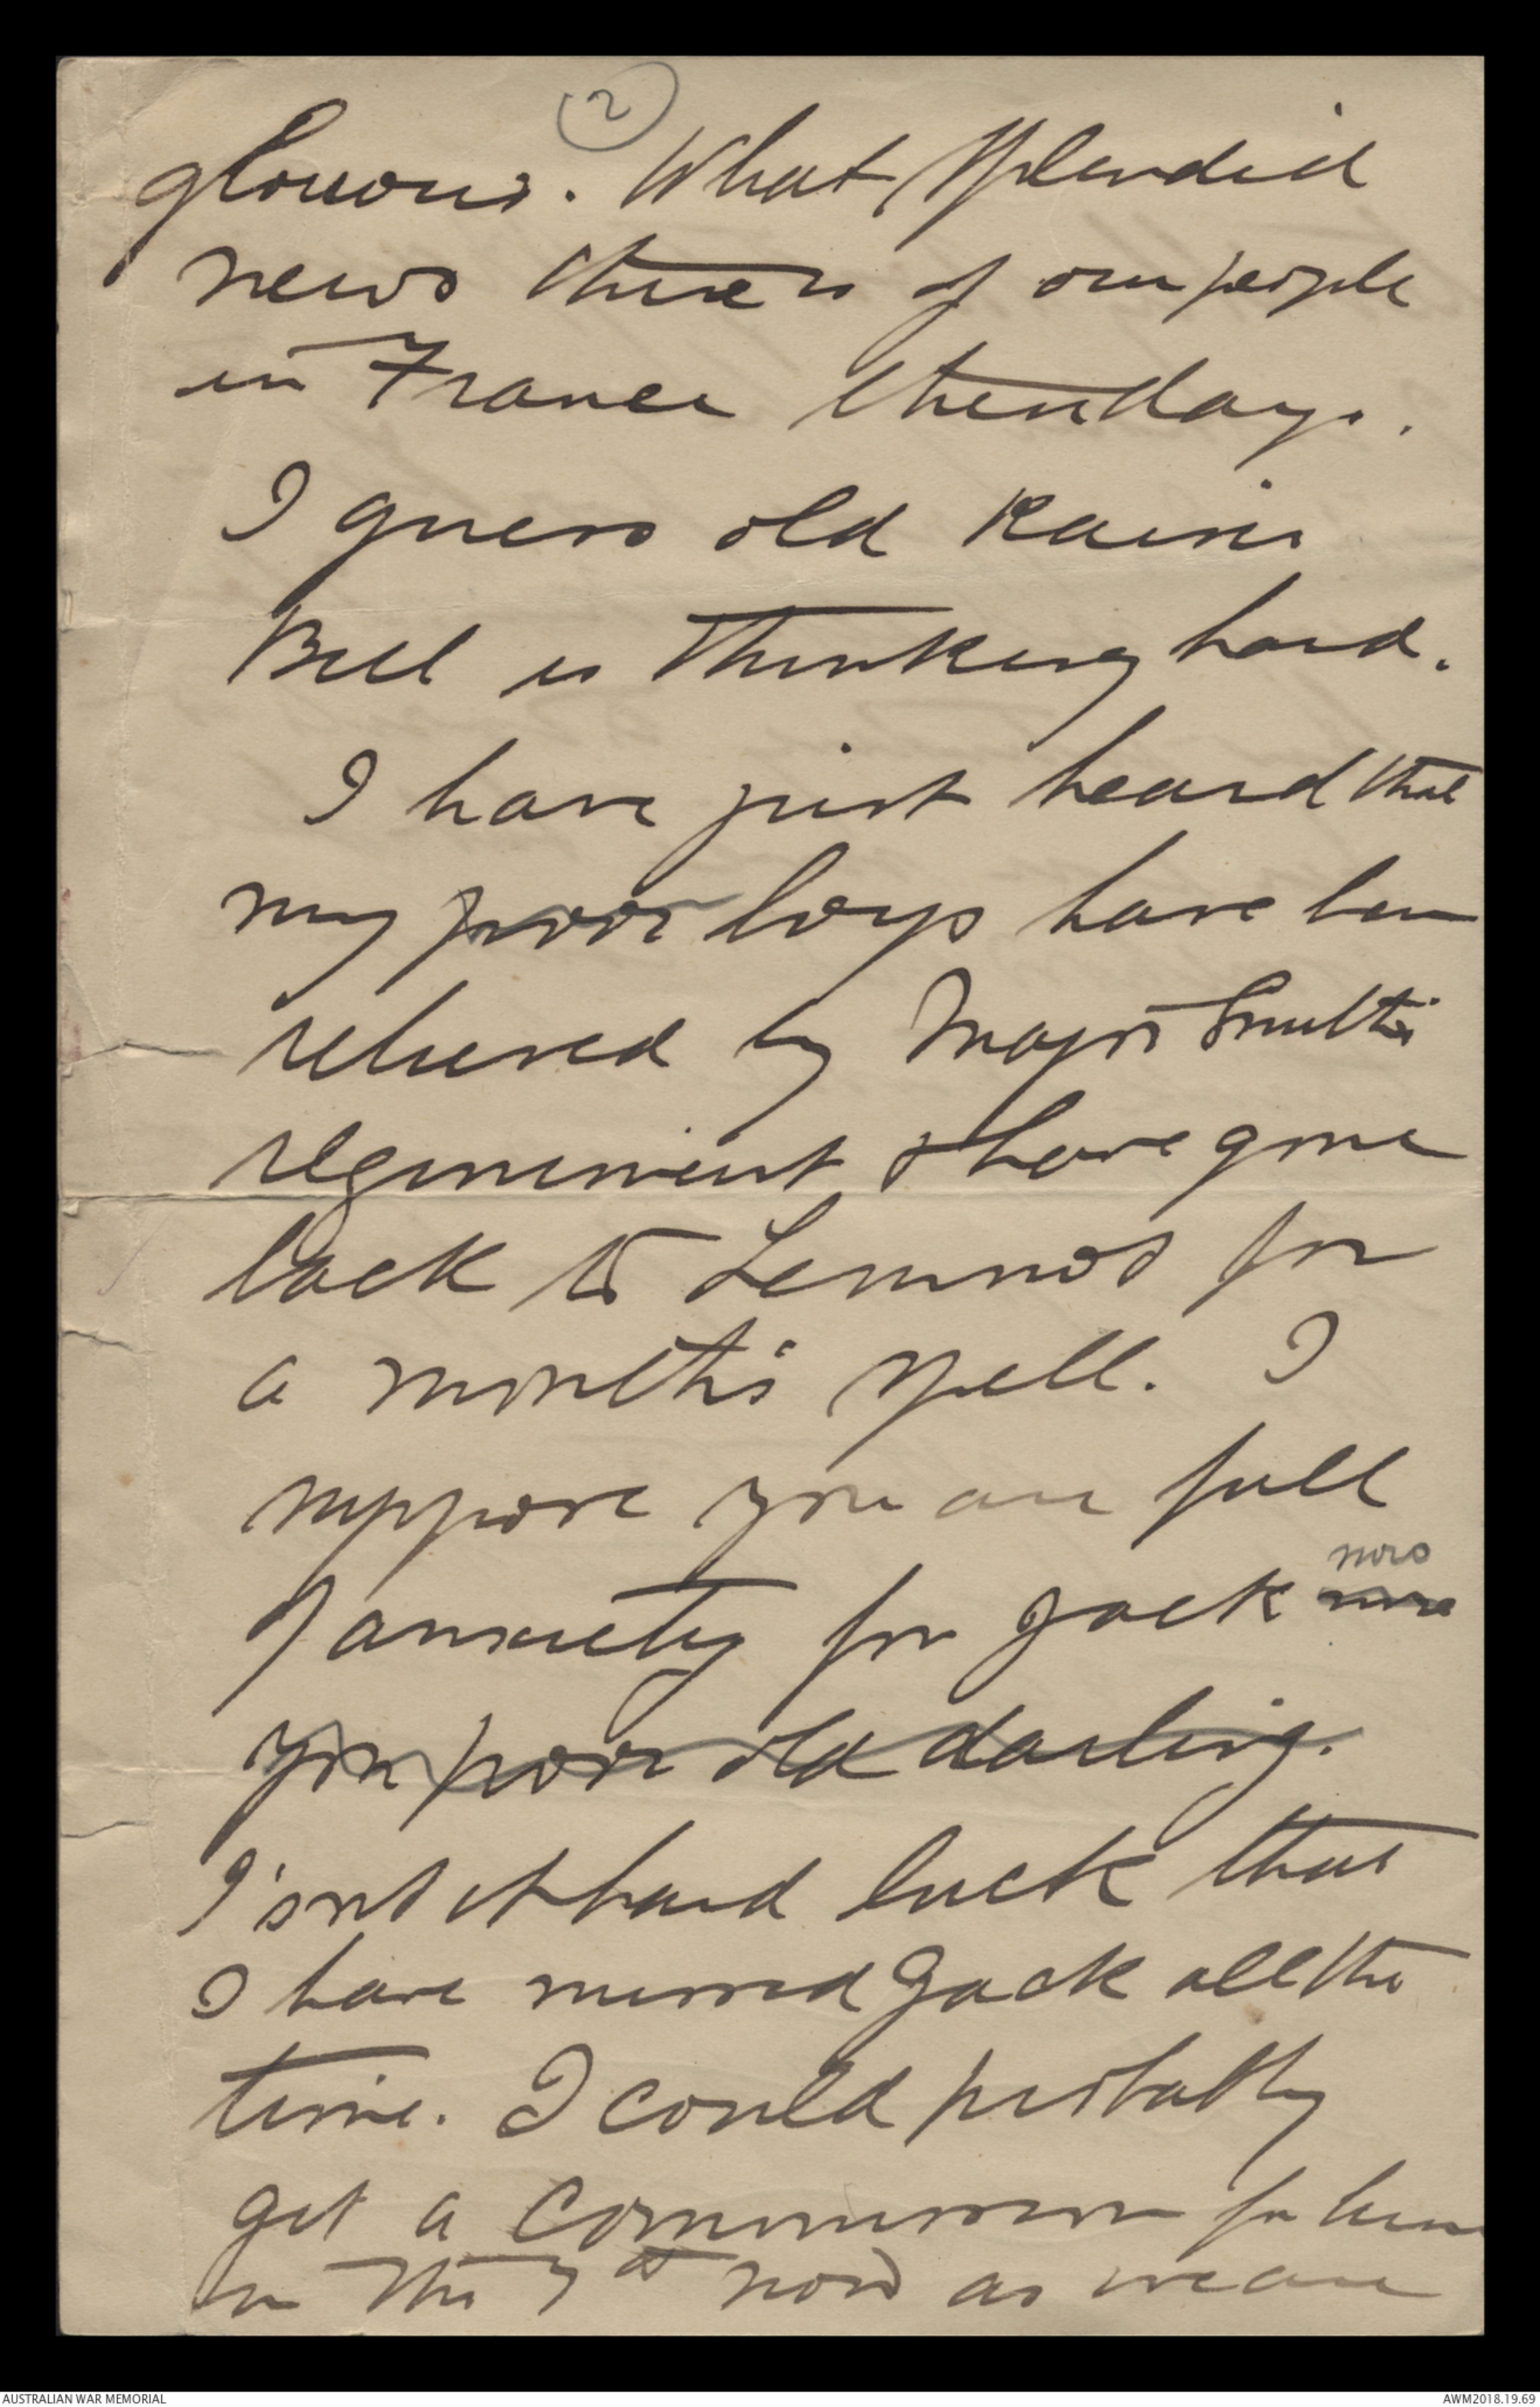 2
glorious. What splendid
news there is of our people
in France these days.
I guess old Kaiser
Bill is thinking hard.
I have just heard that
my poor boys have been
relieved by Major Smith's
regiment & have gone
back to Lemnos for
a month's spell. I
suppose you are full
now
of anxiety for Jack
you poor old darling.
Isn't it hard luck that
I have missed Jack all the
time. I could probably
get a commission for him
in the 7th now as we are
AUSTRALIAN WAR MEMORIAL
AWM2018.19.69